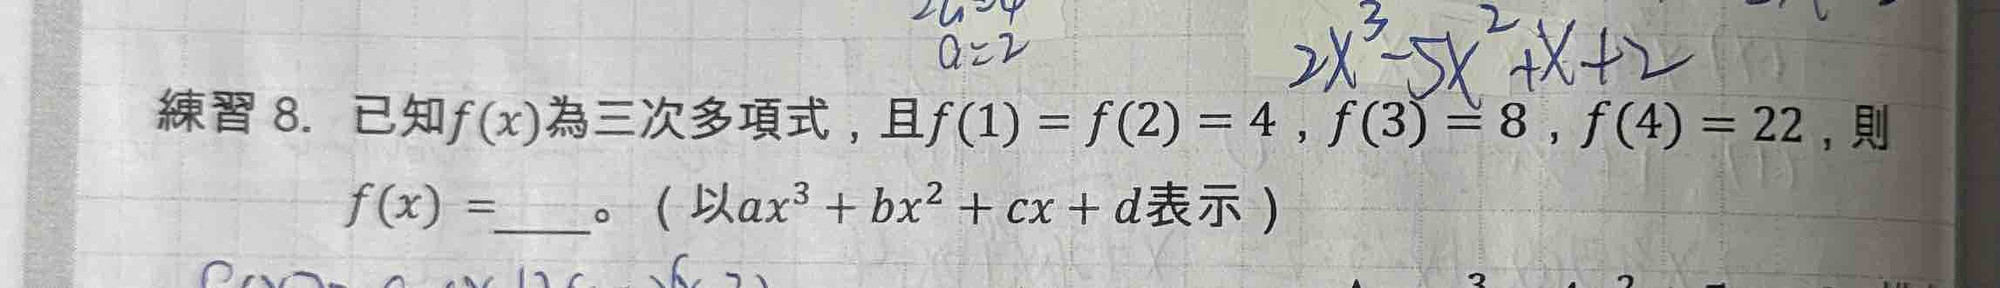 a=2
2x³-5x²+x+2
練習 8. 已知f(x)為三次多項式，且f(1) = f(2) = 4，f(3) = 8，f(4) = 22，則
f(x) =____。（以ax³ + bx² + cx + d表示）